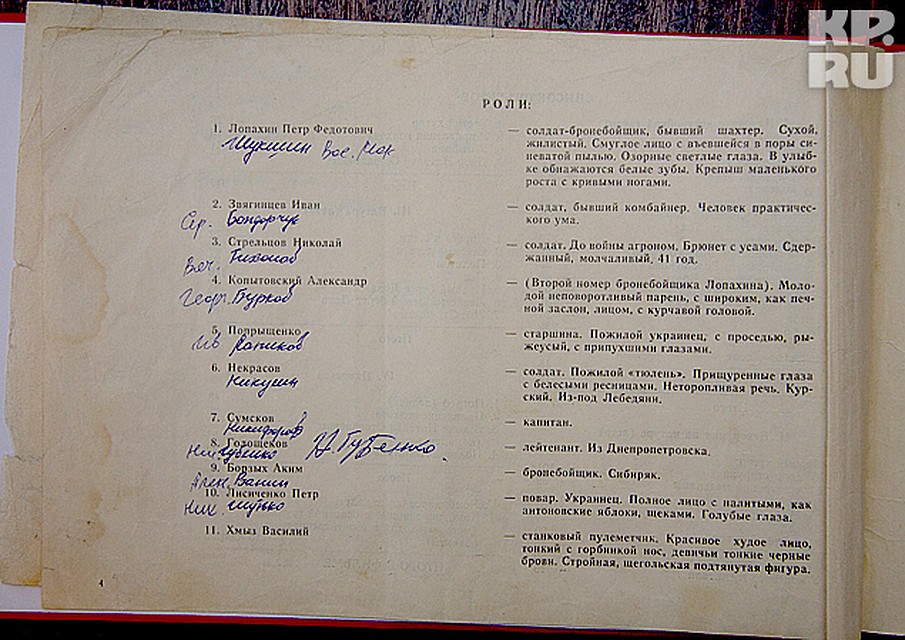 KP.
RU
РОЛИ:
1. Лопахин Петр Федотович
Шукшин Вас. Мак
— солдат-бронебойщик, бывший шахтер. Сухой,
жилистый. Смуглое лицо с въевшейся в поры си-
неватой пылью. Озорные светлые глаза. В улыб-
ке обнажаются белые зубы. Крепыш маленького
роста с кривыми ногами.
2. Звягинцев Иван
Сер. Бондарчук
— солдат, бывший комбайнер. Человек практичес-
кого ума.
3. Стрельцов Николай
Вяч. Тихонов
— солдат. До войны агроном. Брюнет с усами. Сдер-
жанный, молчаливый, 41 год.
4. Копытовский Александр
Георг. Бурков
— (Второй номер бронебойщика Лопахина). Моло-
дой неповоротливый парень, с широким, как печ-
ной заслон, лицом, с курчавой головой.
5. Попрыщенко
Ив Лапиков
— старшина. Пожилой украинец, с проседью, ры-
жеусый, с припухшими глазами.
6. Некрасов
Никулин
— солдат. Пожилой «тюлень». Прищуренные глаза
с белесыми ресницами. Неторопливая речь. Кур-
ский. Из-под Лебедяни.
7. Сумсков
Никифоров
— капитан.
8. Голощеков
Ник. Губенко Н. Губенко.
— лейтенант. Из Днепропетровска.
9. Борзых Аким
Алек. Ванин
— бронебойщик. Сибиряк.
10. Лисиченко Петр
Ник Шутько
— повар. Украинец. Полное лицо с налитыми, как
антоновские яблоки, щеками. Голубые глаза.
11. Хмыз Василий
— станковый пулеметчик. Красивое худое лицо,
тонкий с горбинкой нос, девичьи тонкие черные
брови. Стройная, щегольская подтянутая фигура.
4